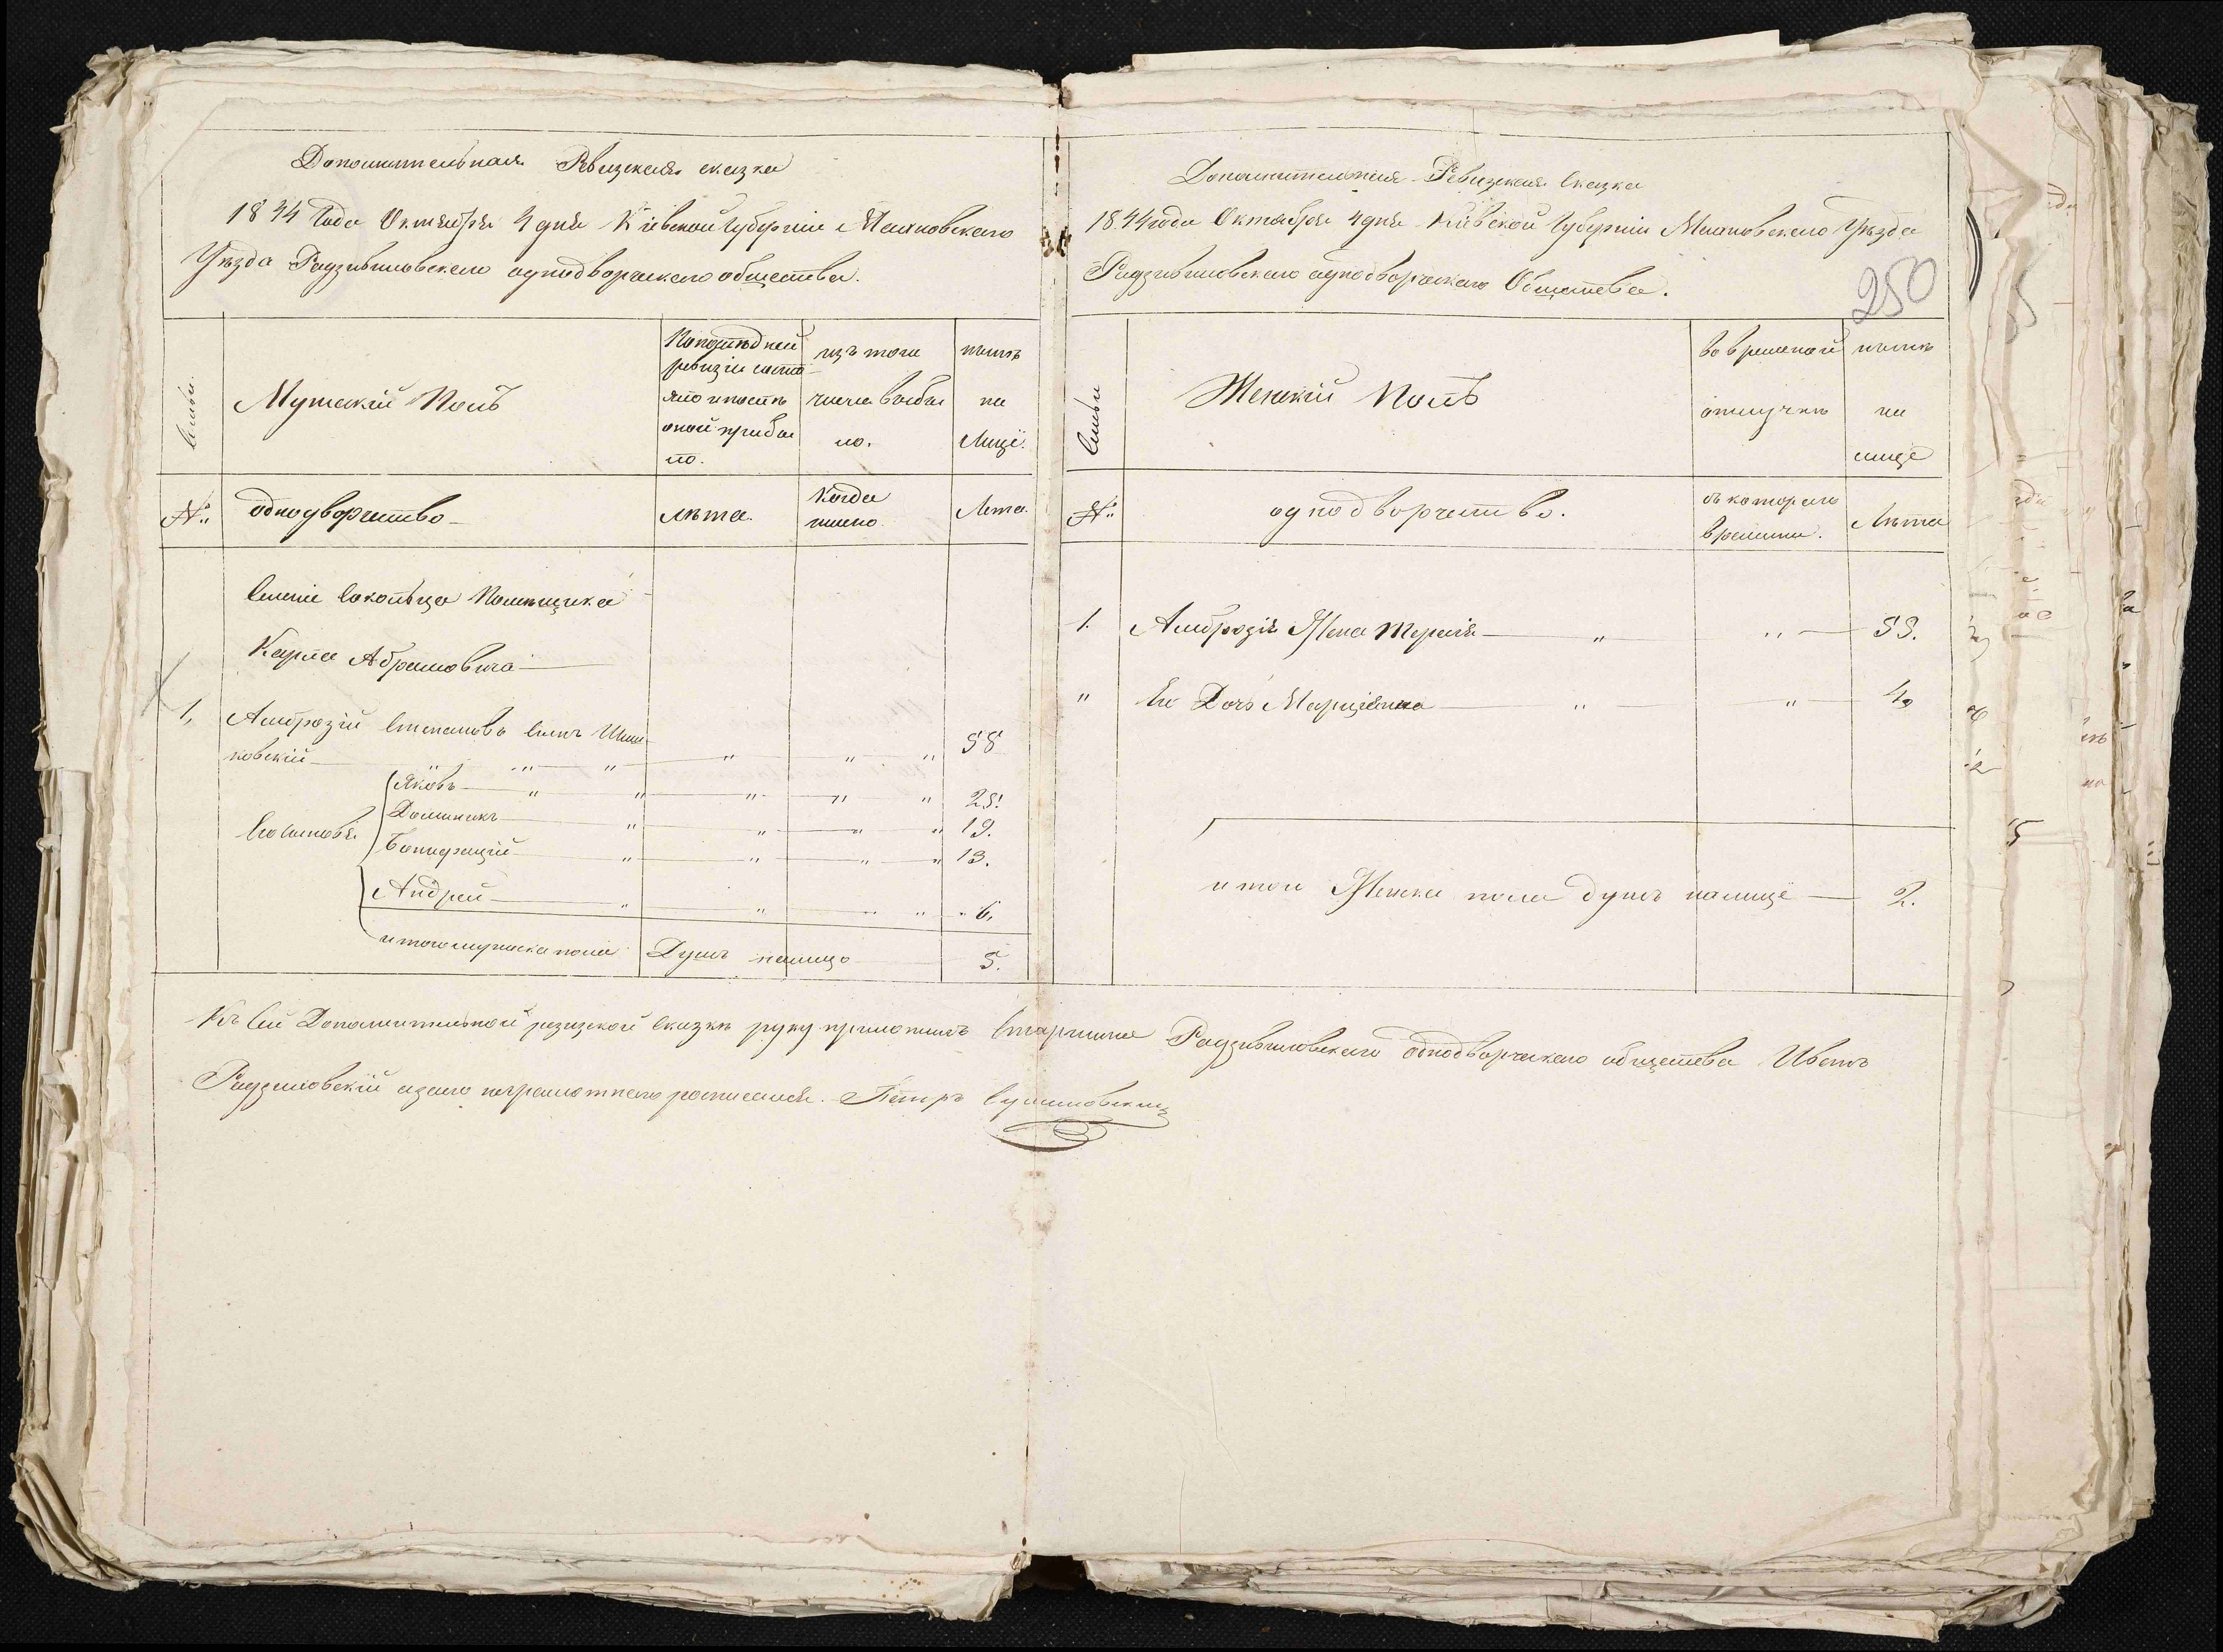 Дополнительная Ревизская сказка
1844 Года Октября 4 дня Кіевской Губерніи Меановского
Уѣзда Радзивиловского однодворческого общества.
Семьи.
Мужескій Полъ
По последней
ревизіи состо
яло и послѣ
оной прибы
ло.
изъ того
числа выбы
ло.
нынѣ
на
Лицѣ.
№
однодворчество
лѣта.
Когда
имено
Лета.
Селеніе Сокольца Помѣщика
Карла Абрамовича
1, Амброзій Степановъ сынъ
ковскій 58
Его сыновья
Яковъ 25.
Доминикъ 19.
Бонифацій 13.
Андрей 6.
итого мужеска пола Душъ налицо 5.
Дополнительная Ревизская Сказка
1844 года Октября 4 дня Кіевской Губерніи Меановского Уѣзда
Радзивиловского однодворческого Общества.
250
Семьи
Женскій Полъ
во временной
отлучкѣ
нынѣ
на
лице
№
однодворчество.
съ которого
времени.
Лѣта
1. Амброзія Жена Терезія 53.
" Его Дочь Марціянна 4
итого Женска пола душъ налице 2.
Къ сей Дополнительной ревизской сказкѣ руку приложилъ Старшина Радзивиловского однодворческого общества
Радзиловскій азаего неграмотного росписался. Петръ